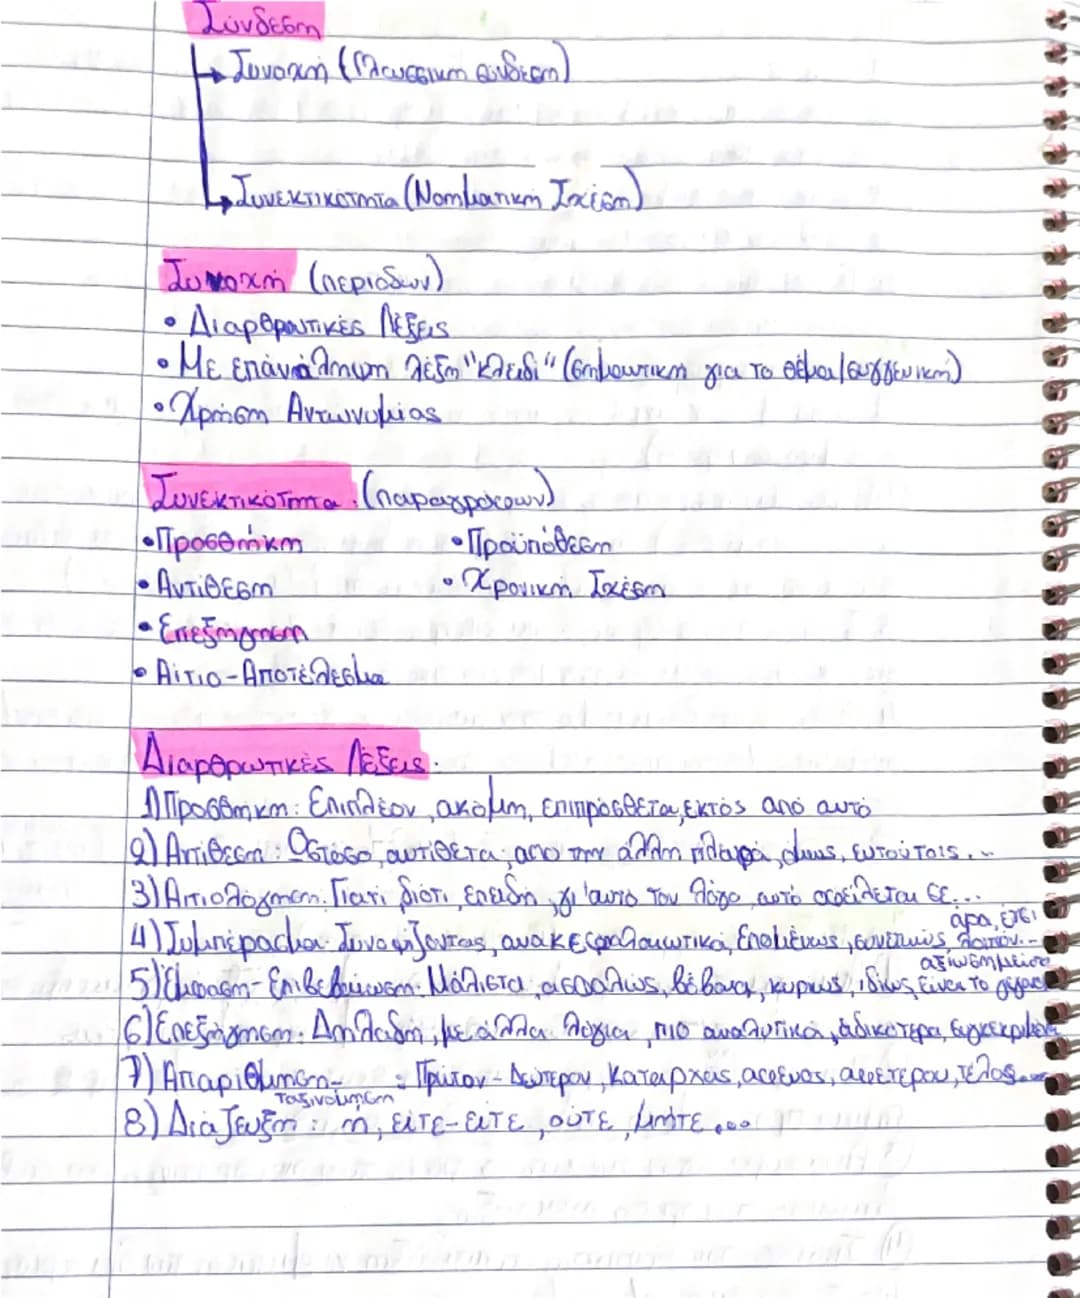 Σύνδεση
Συνοχή (Γλωσσική σύνδεση)
Συνεκτικότητα (Νοηματική Σχέση)
Συνοχή (περιόδων)
• Διαρθρωτικές Λέξεις
• Με επανάληψη λέξη "κλειδί" (σημαντική για το θέμα/συγγενική)
• Χρήση Αντωνυμίας
Συνεκτικότητα (παραγράφων)
• Προσθήκη • Προϋπόθεση
• Αντίθεση • Χρονική Σχέση
• Επεξήγηση
• Αίτιο-Αποτέλεσμα
Διαρθρωτικές Λέξεις
1) Προσθήκη: Επιπλέον, ακόμη, επιπρόσθετα, εκτός από αυτό
2) Αντίθεση: Ωστόσο, αντίθετα, από την άλλη πλευρά, όμως, εντούτοις...
3) Αιτιολόγηση: Γιατί, διότι, επειδή, γι'αυτό τον λόγο, αυτό οφείλεται σε...
άρα, έτσι
4) Συμπέρασμα: Συνοψίζοντας, ανακεφαλαιωτικά, Επομένως, συνεπώς, λοιπόν...
αξιοσημείωτο
5) Έμφαση-Επιβεβαίωση: Μάλιστα, ασφαλώς, βέβαια, κυρίως, ιδίως, είναι το γεγονός
6) Επεξήγηση: Δηλαδή, με άλλα λόγια, πιο αναλυτικά, ειδικότερα, συγκεκριμένα
7) Απαρίθμηση- : Πρώτον-Δεύτερον, καταρχάς, αφενός, αφετέρου, τέλος...
Ταξινόμηση
8) Διάζευξη: ή, είτε-είτε, ούτε, μήτε...